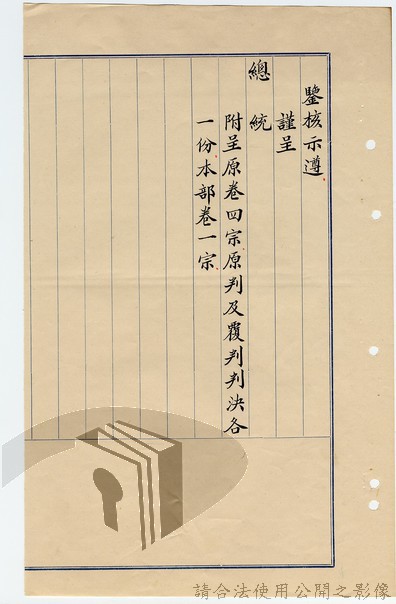 鑒核示遵
謹呈
總統
附呈原卷四宗原判及覆判判決各
一份本部卷一宗
請合法使用公開之影像